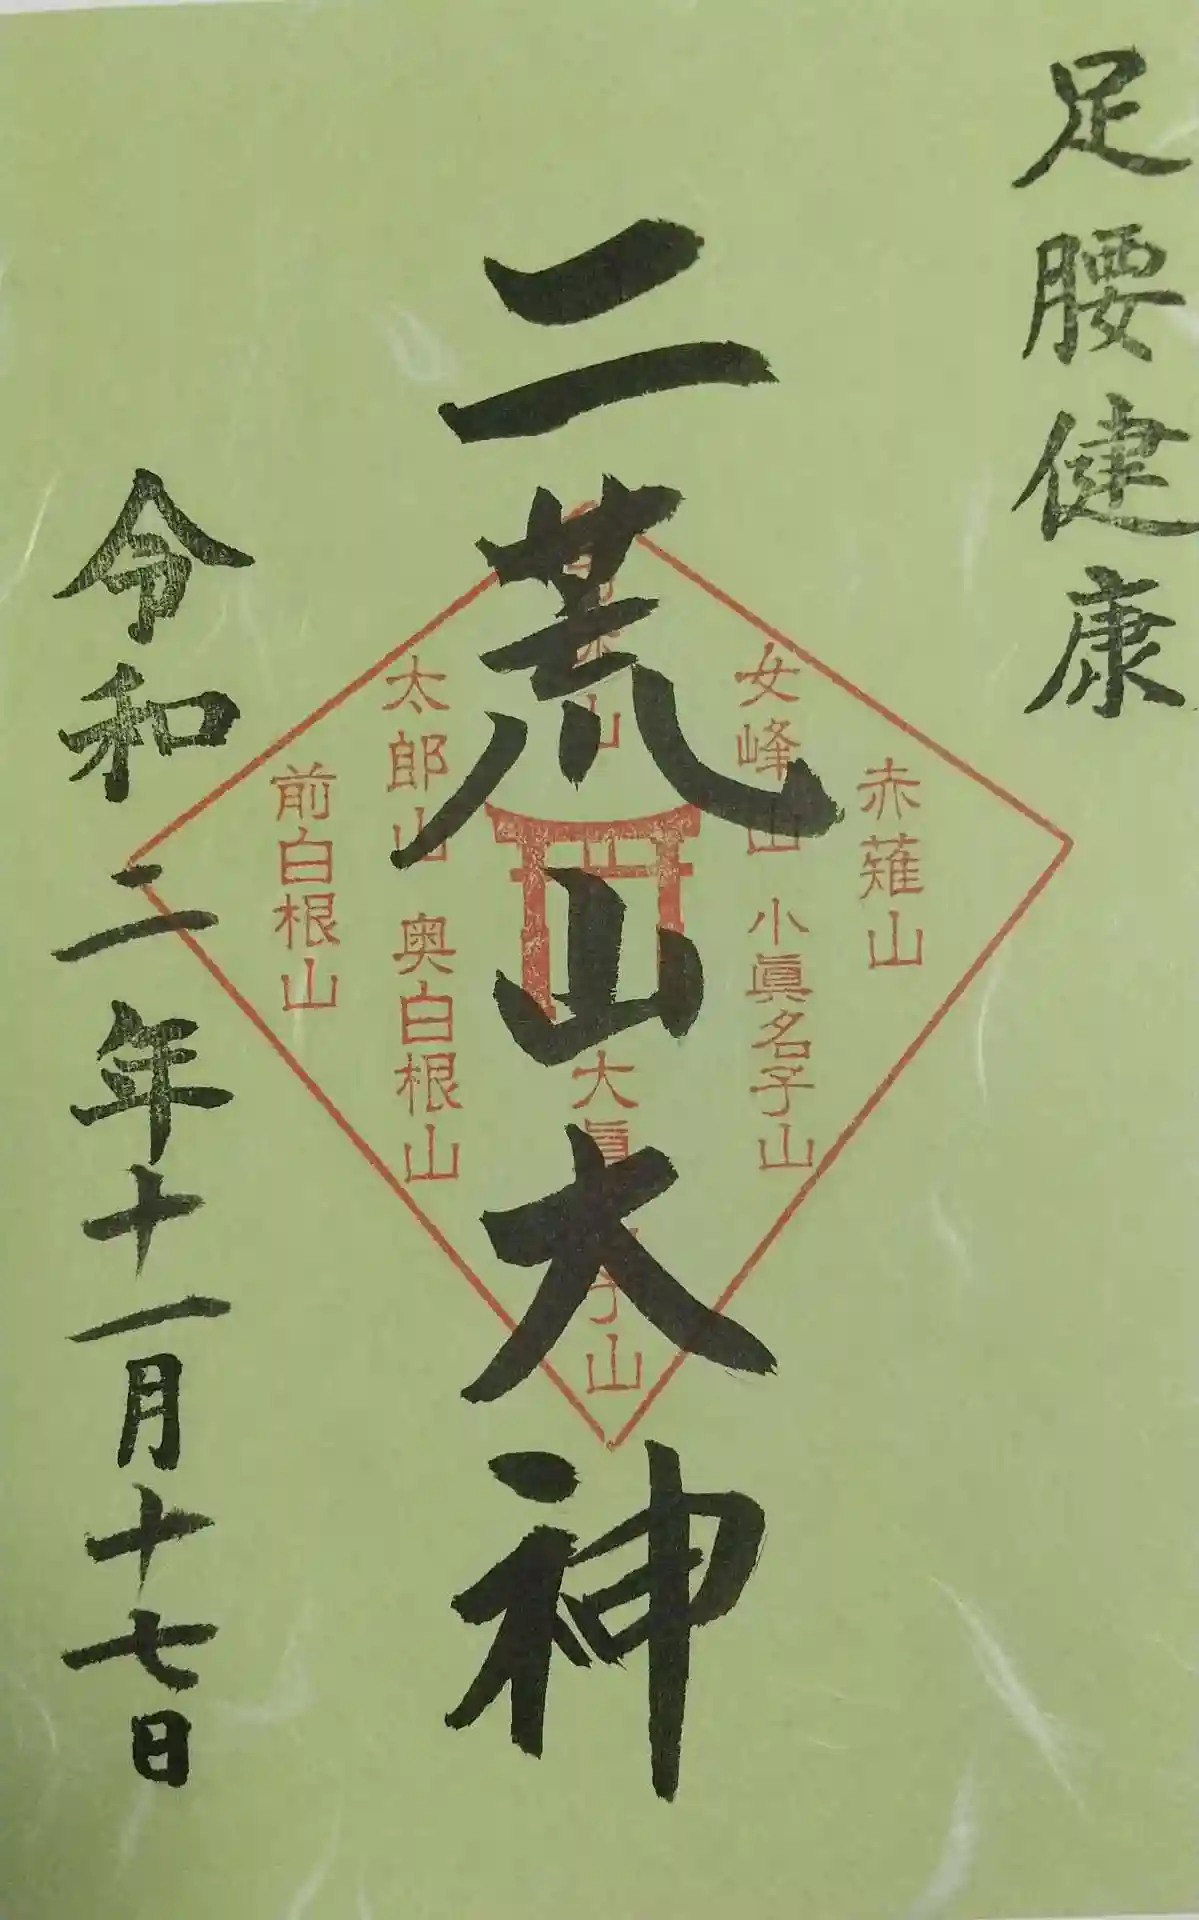 足腰健康
二荒山大神
赤薙山
女峰山 小眞名子山
山
大眞 子山
太郎山 奥白根山
前白根山
令和二年十一月十七日